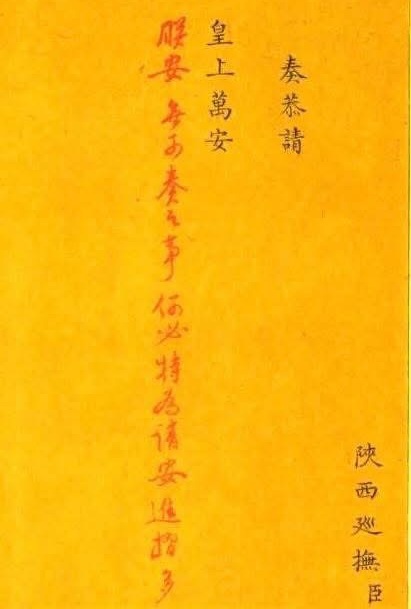 陝西廵撫臣
奏恭請
皇上萬安
朕安 無可奏之事 何必特為請安進摺多